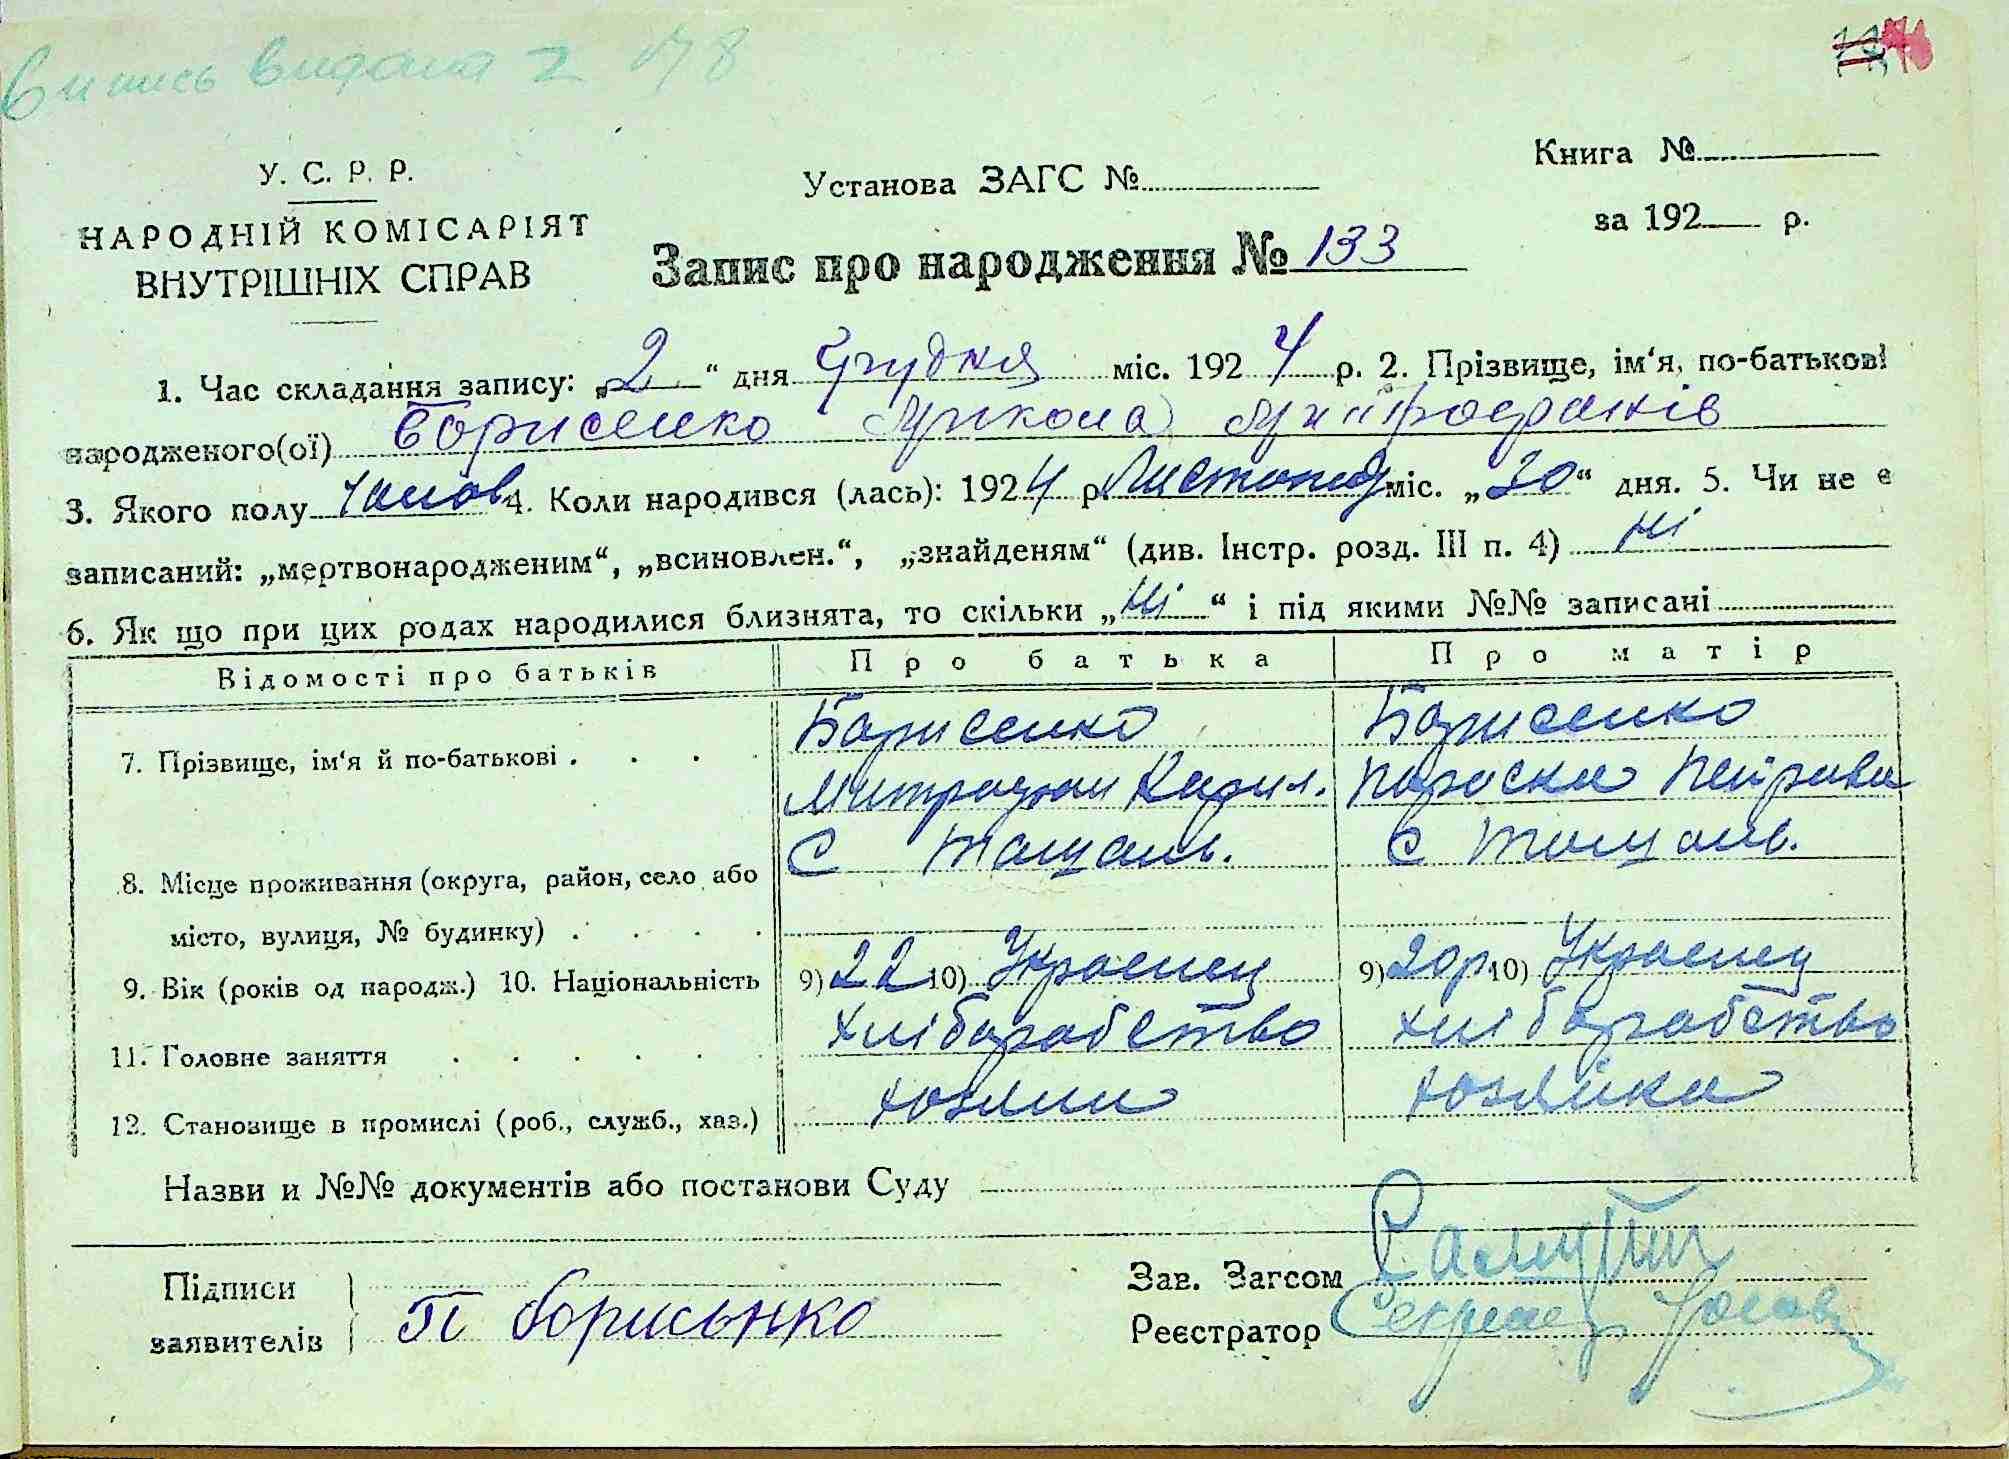 Випись видана 2 78
У. С. Р. Р.
НАРОДНІЙ КОМІСАРІЯТ
ВНУТРІШНІХ СПРАВ
Установа ЗАГС №
Книга №
за 192 р.
Запис про народження № 133
1. Час складання запису: „2“ дня Грудня міс. 1924 р. 2. Прізвище, ім‘я, по-батькові
народженого(ої) Борисенко Микола Митрофанів
3. Якого полу чолов 4. Коли народився (лась): 1924 р. Листопад міс. „30“ дня. 5. Чи не є
записаний: „мертвонародженим“, „всиновлен.“, „знайденям“ (див. Інстр. розд. III п. 4) Ні
6. Як що при цих родах народилися близнята, то скільки „Ні“ і під якими №№ записані
Відомості про батьків
Про батька
Про матір
7. Прізвище, ім‘я й по-батькові
Борисенко
Митрофан Кирил.
Борисенко
Параска Петрівна
8. Місце проживання (округа, район, село або
місто, вулиця, № будинку)
С Тащань.
С Тащань.
9. Вік (років од народж.) 10. Національність
9) 22 10) Українец
9) 20р 10) Українец
11. Головне заняття
хліборобство
хліборобство
12. Становище в промислі (роб., служб., хаз.)
хозяин
хозяйка
Назви и №№ документів або постанови Суду
Підписи
заявителів
П Борисенко
Зав. Загсом
Реєстратор